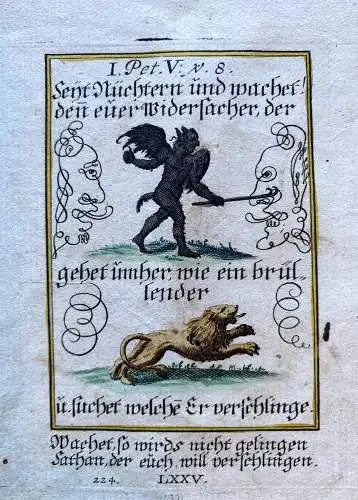 I. Pet. V. v. 8.
Seÿt Nüchtern und wachet!
deñ eüer Widersacher, der
gehet ümher, wie ein brül-
lender
ü. suchet welchē Er verschlinge.
Wachet, so wirds nicht gelingen
Sathan, der euch will verschlingen.
224. LXXV.